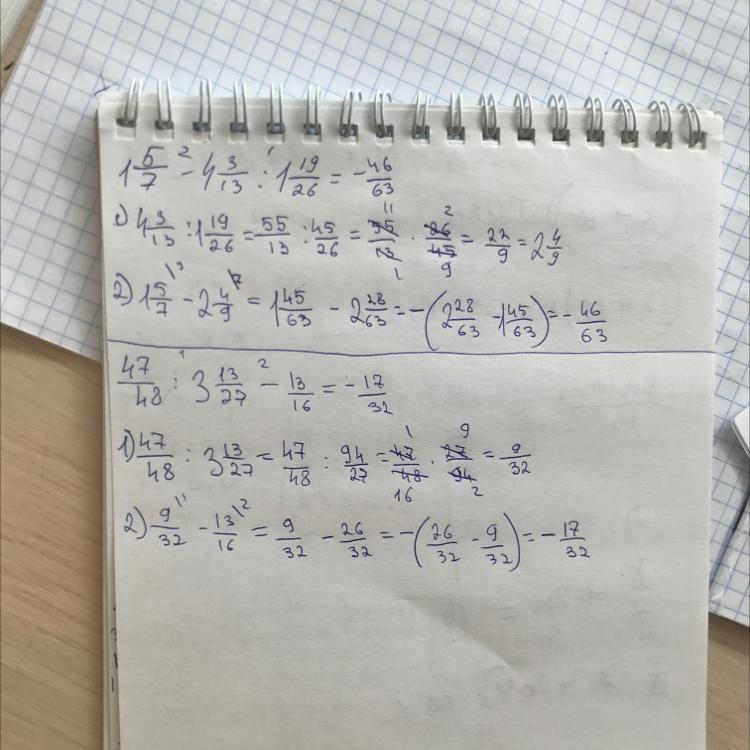 1 5/7 - 4 3/13 : 1 19/26 = - 46/63
1) 4 3/13 : 1 19/26 = 55/13 : 45/26 = 55/13 · 26/45 = 22/9 = 2 4/9
2) 1 5/7 - 2 4/9 = 1 45/63 - 2 28/63 = -(2 28/63 - 1 45/63) = - 46/63
47/48 : 3 13/27 - 13/16 = - 17/32
1) 47/48 : 3 13/27 = 47/48 : 94/27 = 47/48 · 27/94 = 9/32
2) 9/32 - 13/16 = 9/32 - 26/32 = -(26/32 - 9/32) = - 17/32